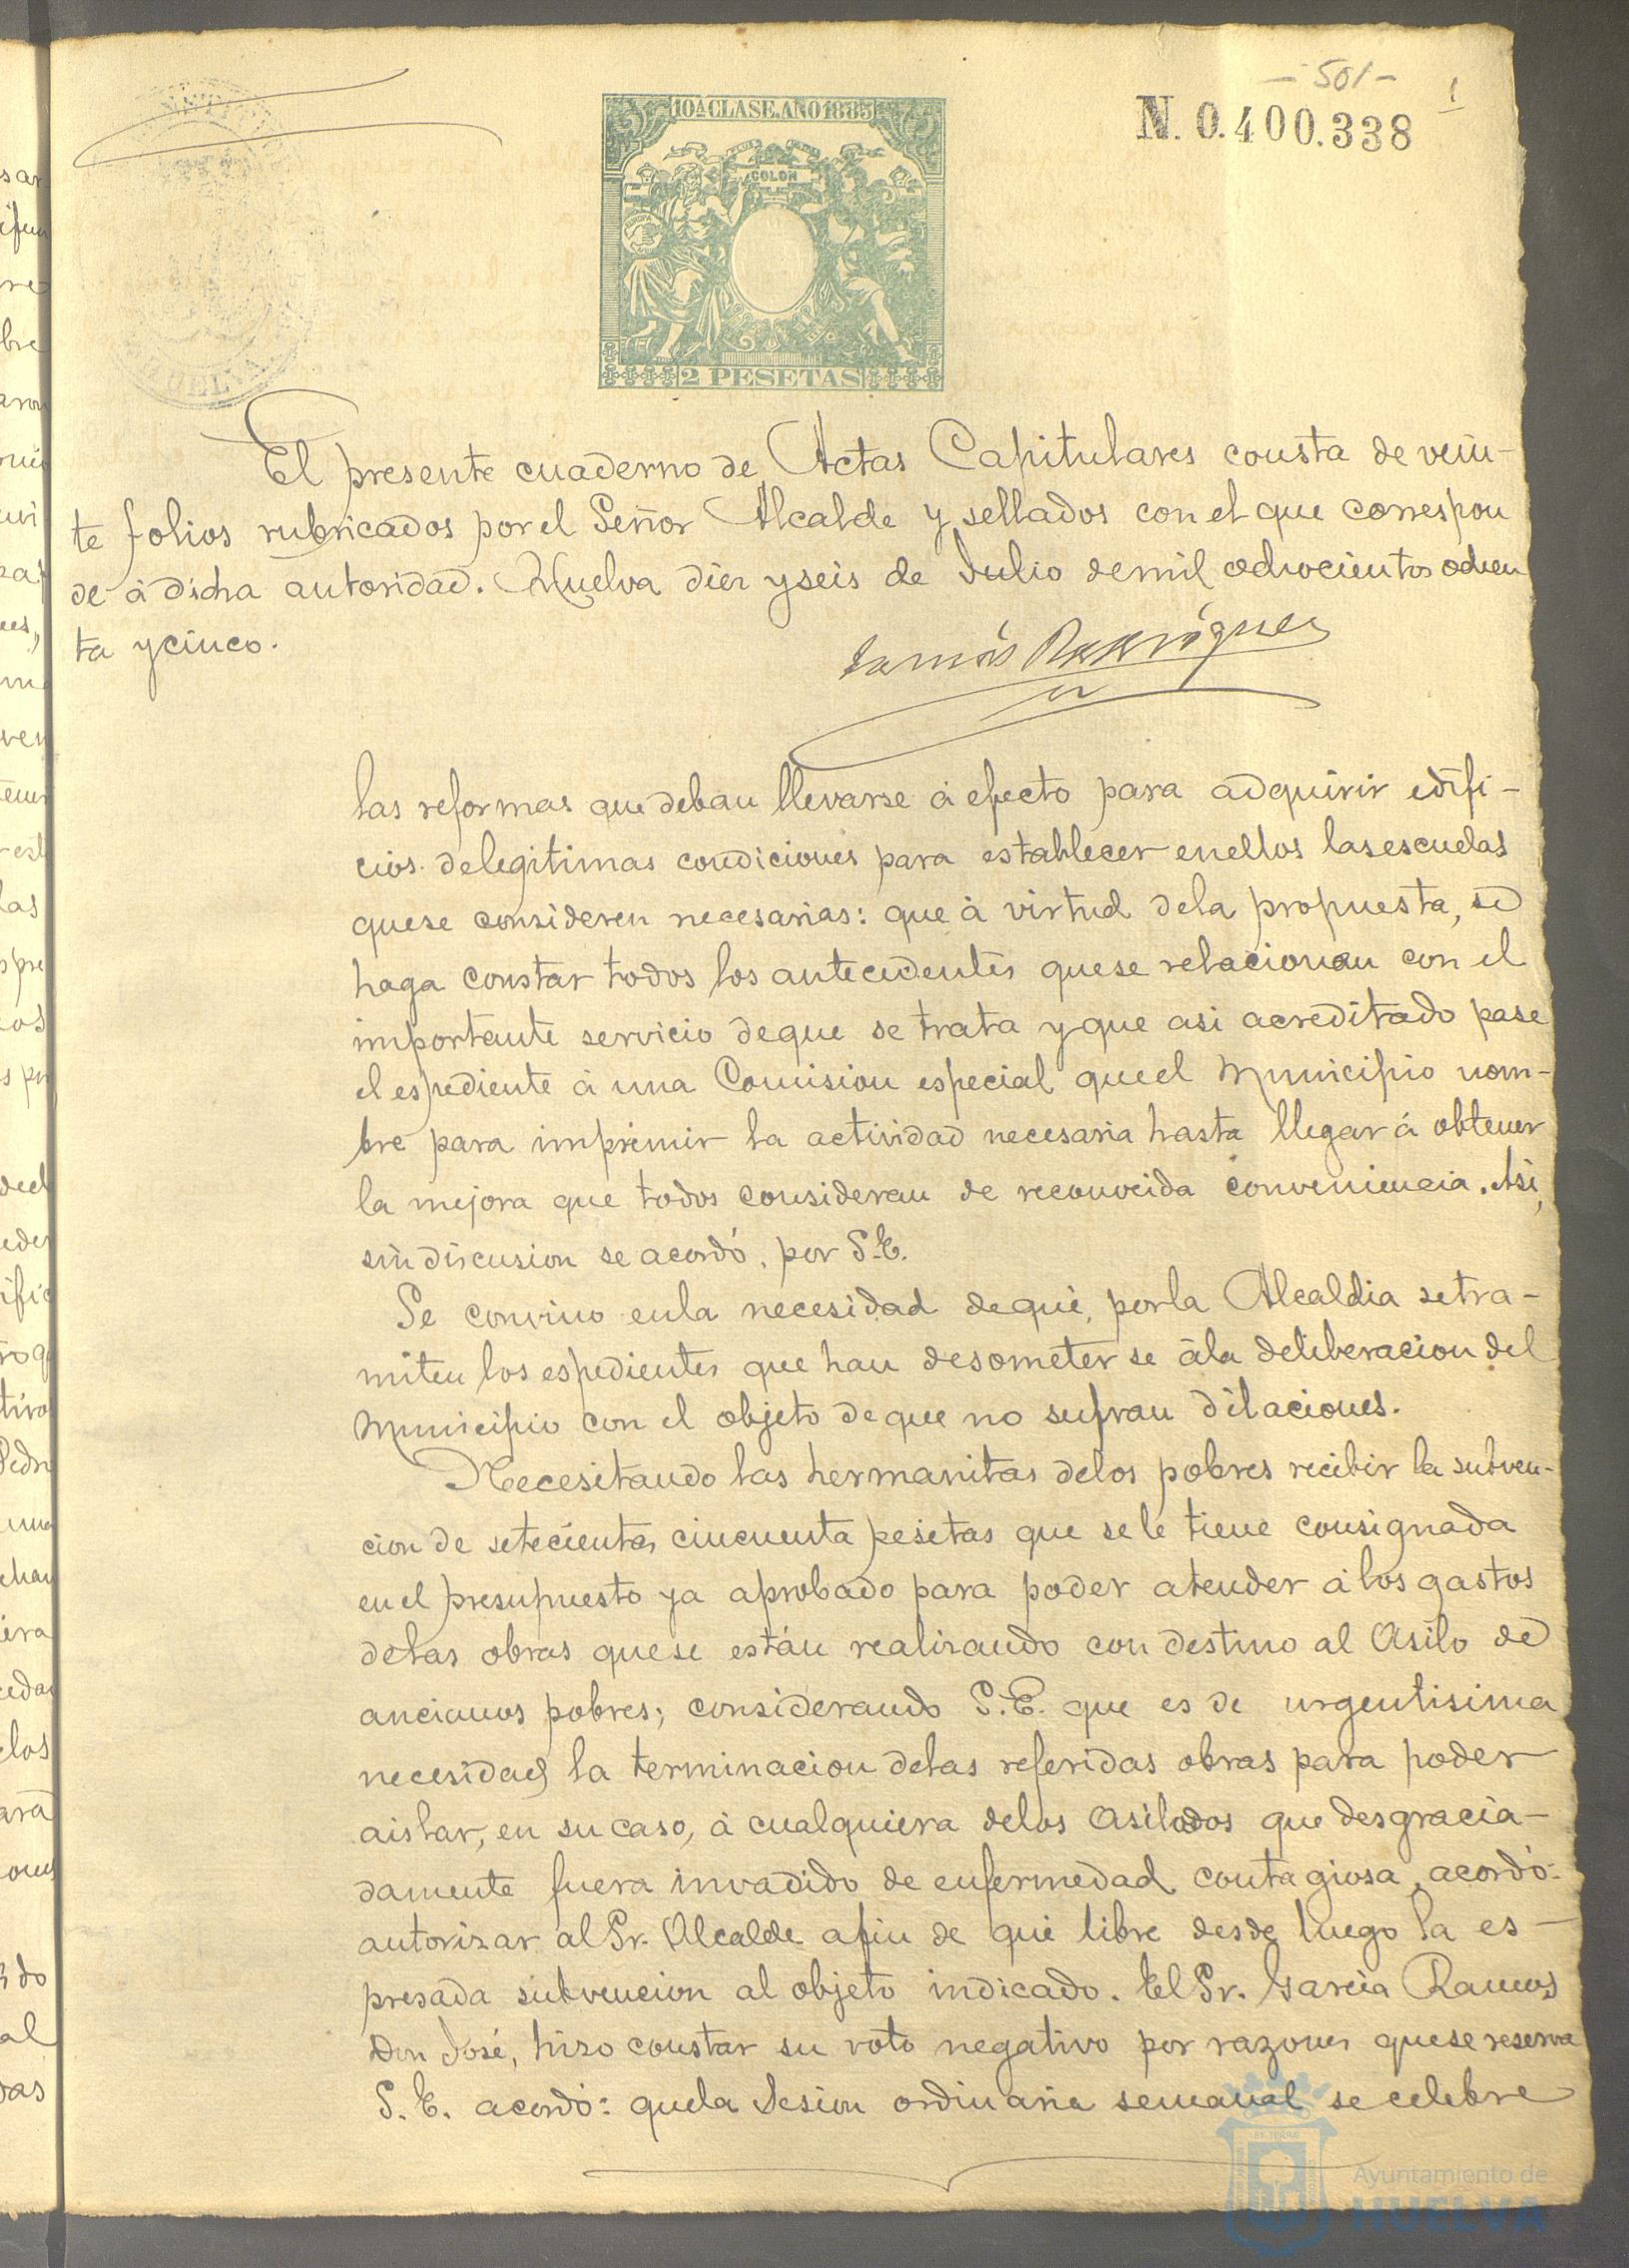 - 501 -
1
10ª CLASE. AÑO 1885
N. 0.400.338
COLON
EUROPA
2 PESETAS
HUELVA
El presente cuaderno de Actas Capitulares consta de vein-
te folios rubricados por el Señor Alcalde y sellados con el que correspon
de á dicha autoridad. Huelva diez y seis de Julio de mil ochocientos ochen
ta y cinco.
Tomás Rodríguez
las reformas que deban llevarse á efecto para adquirir edifi-
cios de legitimas condiciones para establecer en ellos las escuelas
que se consideren necesarias: que á virtud de la propuesta, se
haga constar todos los antecedentes que se relacionan con el
importante servicio de que se trata y que asi acreditado pase
el espediente á una Comision especial que el Municipio nom-
bre para imprimir la actividad necesaria hasta llegar á obtener
la mejora que todos consideran de reconocida conveniencia. Asi,
sin discusion se acordó, por S.E.
Se convino en la necesidad de que, por la Alcaldia se tra-
miten los espedientes que han de someterse á la deliberacion del
Municipio con el objeto de que no sufran dilaciones.
Necesitando las hermanitas de los pobres recibir la subven-
cion de setecientas cincuenta pesetas que se le tiene consignada
en el presupuesto ya aprobado para poder atender á los gastos
de las obras que se están realizando con destino al Asilo de
ancianos pobres; considerando S.E. que es de urgentisima
necesidad la terminacion de las referidas obras para poder
aislar, en su caso, á cualquiera de los Asilados que desgracia-
damente fuera invadido de enfermedad contagiosa, acordó:
autorizar al Sr. Alcalde afin de que libre desde luego la es-
presada subvencion al objeto indicado. El Sr. Garcia Ramos
Don José, hizo constar su voto negativo por razones que se reserva
S.E. acordó: que la Sesion ordinaria semanal se celebre
Ayuntamiento de
HUELVA